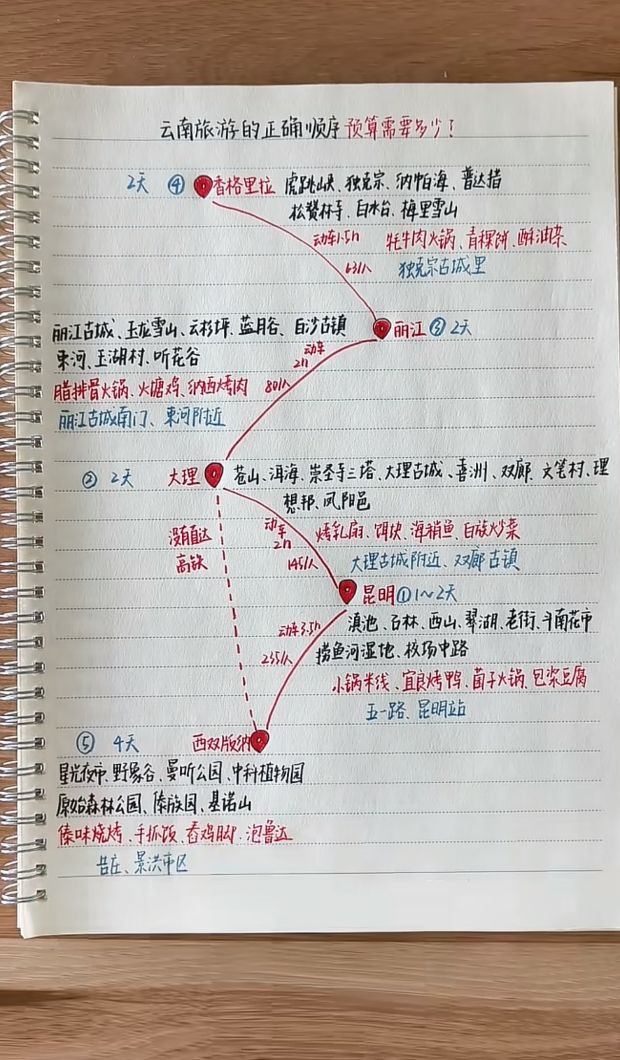 云南旅游的正确顺序 预算需要多少！
2天 ④ 香格里拉 虎跳峡、独克宗、纳帕海、普达措
松赞林寺、白水台、梅里雪山
动车1.5h 牦牛肉火锅、青稞饼、酥油茶
63/人 独克宗古城里
丽江古城、玉龙雪山、云杉坪、蓝月谷、白沙古镇
丽江 ③ 2天
束河、玉湖村、听花谷
动车
2h
腊排骨火锅、火塘鸡、纳西烤肉 80/人
丽江古城南门、束河附近
② 2天 大理 苍山、洱海、崇圣寺三塔、大理古城、喜洲、双廊、文笔村、理
想邦、凤阳邑
没有直达
高铁
动车
2h
145/人
烤乳扇、饵块、海稍鱼、白族炒菜
大理古城附近、双廊古镇
昆明 ① 1～2天
滇池、石林、西山、翠湖、老街、斗南花市
捞鱼河湿地、教场中路
动车3.5h
235/人
小锅米线、宜良烤鸭、菌子火锅、包浆豆腐
五一路、昆明站
⑤ 4天 西双版纳
星光夜市、野象谷、曼听公园、中科植物园
原始森林公园、傣族园、基诺山
傣味烧烤、手抓饭、舂鸡脚、泡鲁达
告庄、景洪市区